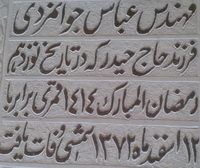 مهندس عباس جوانمردی
فرزند حاج حیدر که در تاریخ نوزدهم
رمضان المبارک ۱۴۱۴ قمری برابر با
۱۲ اسفند ماه ۱۳۷۲ شمسی وفات یافت